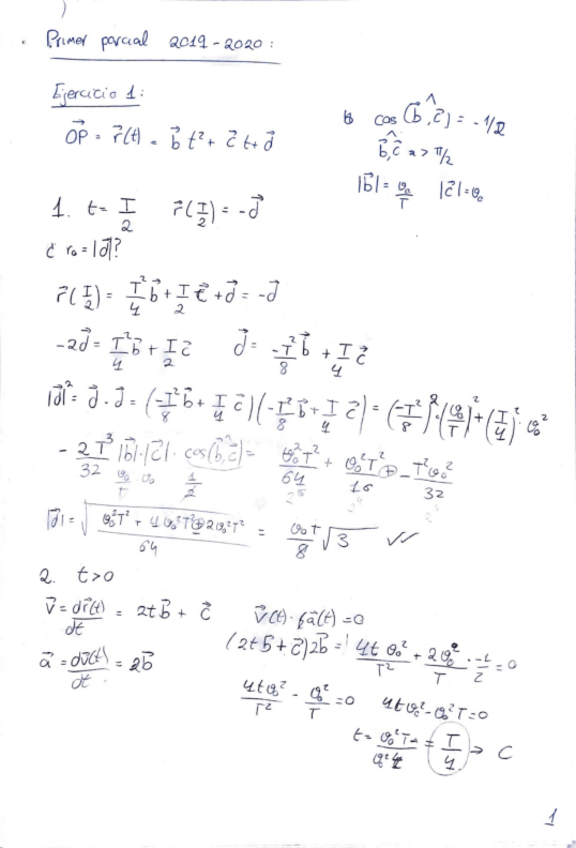 Primer parcial 2019-2020:
Ejercicio 1:
OP⃗ = r⃗(t) = b⃗ t² + c⃗ t + d⃗
cos(b⃗,c⃗) = -1/2
b⃗,c⃗ => π/2
|b⃗| = v₀/T |c⃗| = v₀
1. t = T/2 r⃗(T/2) = -d⃗
¿ r₀ = |d⃗|?
r⃗(T/2) = T²/4 b⃗ + T/2 c⃗ + d⃗ = -d⃗
-2d⃗ = T²/4 b⃗ + T/2 c⃗ d⃗ = -T²/8 b⃗ + T/4 c⃗
|d⃗|² = d⃗ · d⃗ = (-T²/8 b⃗ + T/4 c⃗)(-T²/8 b⃗ + T/4 c⃗) = (-T²/8)² · (v₀/T)² + (T/4)² · v₀²
- 2T³/32 |b⃗|·|c⃗| · cos(b⃗,c⃗) = v₀²T²/64 + v₀²T²/16 - T²v₀²/32
v₀/T · v₀ 1/2
|d⃗| = √((v₀²T² + 4v₀²T² ⊕ 2v₀²T²)/64) = v₀T/8 √3
2. t>0
v⃗ = dr⃗(t)/dt = 2t b⃗ + c⃗ v⃗(t) · a⃗(t) = 0
a⃗ = dv⃗(t)/dt = 2b⃗ (2t b⃗ + c⃗) 2b⃗ = 4t v₀²/T² + 2v₀²/T · -1/2 = 0
4t v₀²/T² - v₀²/T = 0 4t v₀² - v₀²T = 0
t = v₀²T/v₀²4 = T/4 => C
1